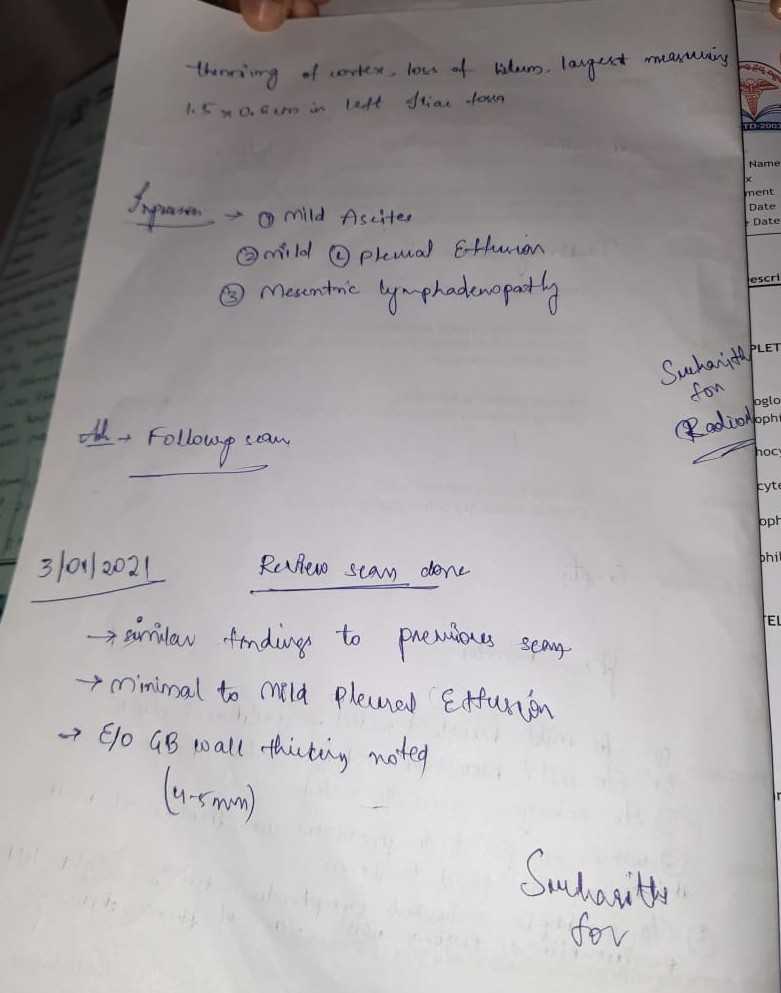 thinning of cortex, loss of hilum, largest measuring
1.5 x 0.6cm in left iliac fossa
Impression → ① mild Ascites
② mild Ⓛ pleural Effusion
③ Mesentric lymphadenopathy
Sucharith
for
Radiol
Adv → Followup scan
3/01/2021 Review scan done
→ similar findings to previous scan
→ minimal to mild pleural Effusion
→ E/O GB wall thicking noted
(4-5mm)
Sucharith
for
TD-2003
Name
x
ment
Date
Date
escri
PLET
oglo
ophi
hocy
cyte
oph
phil
TEL